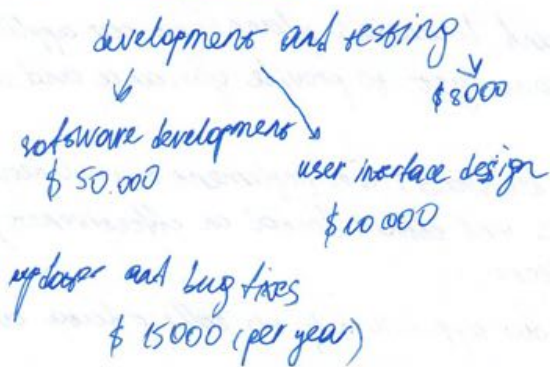 development and testing
$8000
software development
$50.000
user interface design
$10000
updates and bug fixes
$15000 (per year)